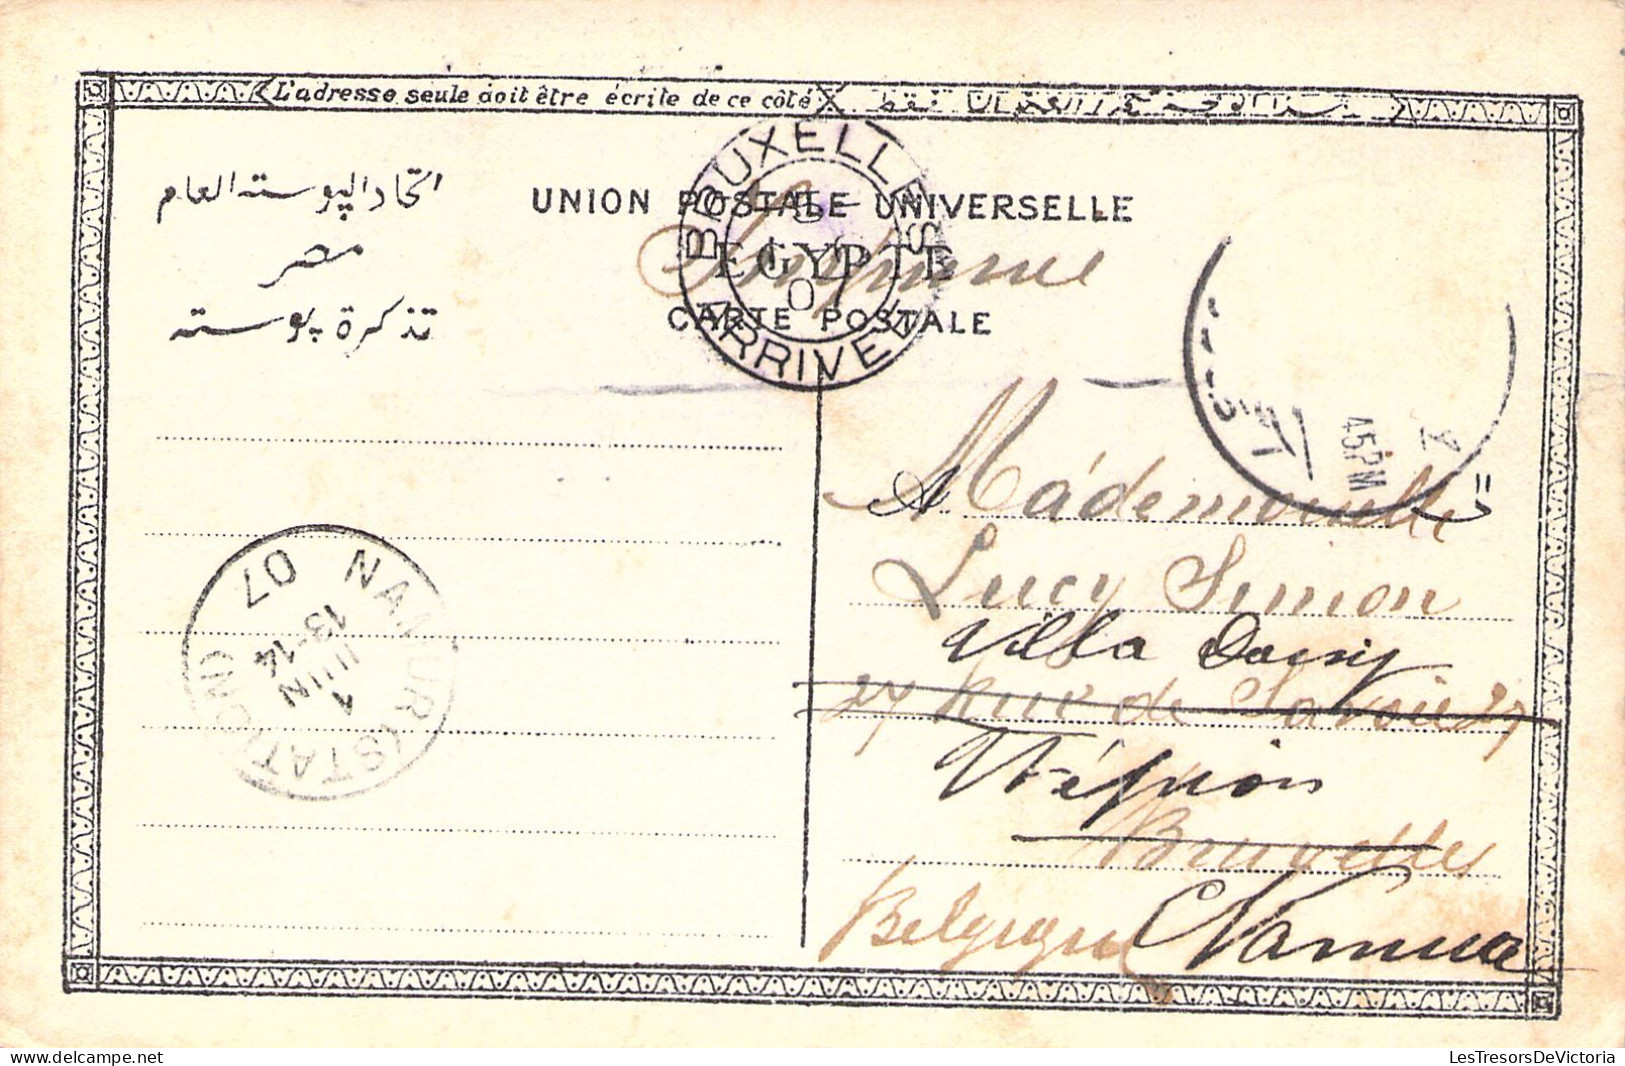 L'adresse seule doit être écrite de ce côté
اتحاد البوسته العام
مصر
تذكرة بوسته
UNION POSTALE UNIVERSELLE
EGYPTE
CARTE POSTALE
BRUXELLES
07
ARRIVEE
45 PM
Mademoiselle
Lucy Simon
Villa Daisy
27 Rue de Savoie 27
Wépion
Bruxelles
Belgique Namur
NAMUR (STATION)
1 JUIN
13-14
07
LesTresorsDeVictoria